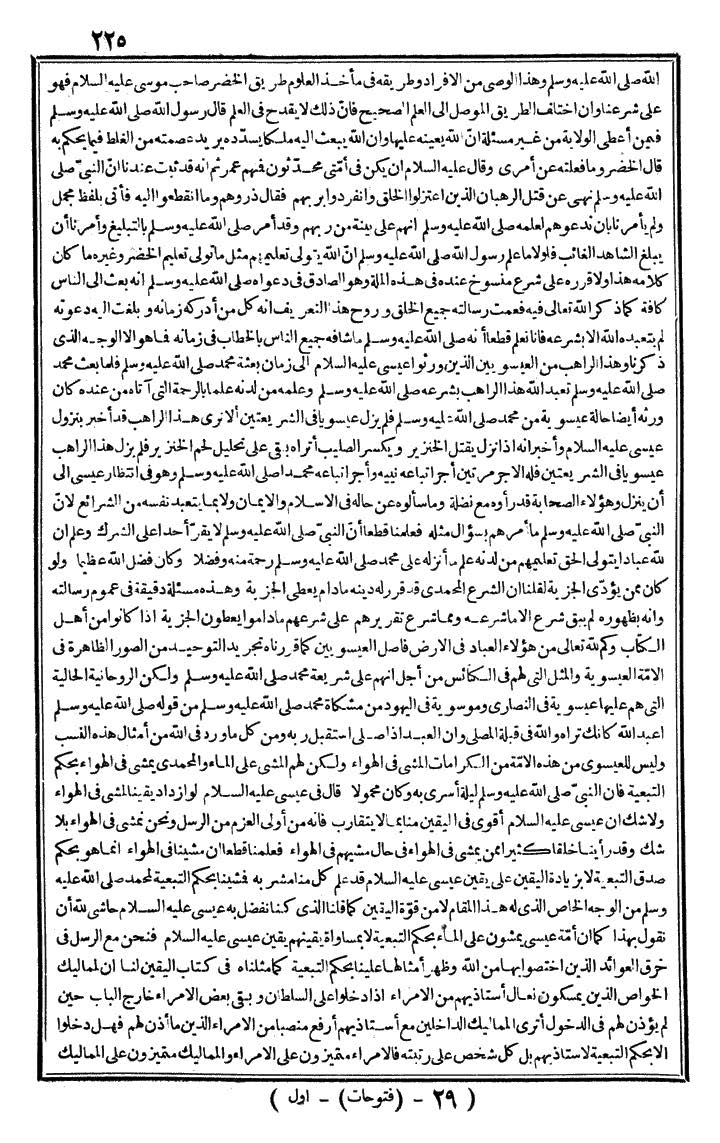 ٢٢٥
الله صلى الله عليه وسلم وهذا الوصى من الافراد وطريقه فى مأخذ العلوم طريق الخضر صاحب موسى عليه السلام فهو
على شرعنا وان اختلف الطريق الموصل الى العلم الصحيح فان ذلك لا يقدح فى العلم قال رسول الله صلى الله عليه وسلم
فيمن أعطى الولاية من غير مسئلة ان الله يعينه عليها وان الله يبعث اليه ملكا يسدده يريد عصمته من الغلط فيما يحكم به
قال الخضر وما فعلته عن أمرى وقال عليه السلام ان يكن فى أمتى محدثون فمنهم عمر ثم انه قد ثبت عندنا ان النبى صلى
الله عليه وسلم نهى عن قتل الرهبان الذين اعتزلوا الخلق وانفردوا بربهم فقال ذروهم وما انقطعوا اليه فأتى بلفظ مجمل
ولم يأمرنا بان ندعوهم لعلمه صلى الله عليه وسلم انهم على بينة من ربهم وقد أمر صلى الله عليه وسلم بالتبليغ وأمرنا أن
يبلغ الشاهد الغائب فلولا ما علم رسول الله صلى الله عليه وسلم ان الله يتولى تعليمهم مثل ما تولى تعليم الخضر وغيره ما كان
كلامه هذا ولا قرره على شرع منسوخ عنده فى هذه الملة وهو الصادق فى دعواه صلى الله عليه وسلم انه بعث الى الناس
كافة كما ذكر الله تعالى فيه فعمت رسالته جميع الخلق وروح هذا التعريف انه كل من أدركه زمانه وبلغت اليه دعوته
لم يتعبده الله الا بشرعه فانا نعلم قطعا أنه صلى الله عليه وسلم ما شافه جميع الناس بالخطاب فى زمانه فما هو الا الوجه الذى
ذكرنا وهذا الراهب من العيسويين الذين ورثوا عيسى عليه السلام الى زمان بعثة محمد صلى الله عليه وسلم فلما بعث محمد
صلى الله عليه وسلم تعبد الله هذا الراهب بشرعه صلى الله عليه وسلم وعلمه من لدنه علما بالرحمة التى آتاه من عنده كان
ورثه أيضا حالة عيسوية من محمد صلى الله عليه وسلم فلم يزل عيسويا فى الشريعتين ألا نرى هذا الراهب قد أخبر بنزول
عيسى عليه السلام وأخبر انه اذا نزل يقتل الخنزير ويكسر الصليب أتراه بقى على تحليل لحم الخنزير فلم يزل هذا الراهب
عيسويا فى الشريعتين فله الاجر مرتين أجر اتباعه نبيه وأجر اتباعه محمدا صلى الله عليه وسلم وهو فى انتظار عيسى الى
أن ينزل وهؤلاء الصحابة قد رأوه مع نضلة وما سألوه عن حاله فى الاسلام والايمان ولا بما يتعبد نفسه من الشرائع لان
النبى صلى الله عليه وسلم ما أمرهم بسؤال مثله فعلمنا قطعا أن النبى صلى الله عليه وسلم لا يقر أحدا على الشرك وعلم ان
لله عبادا يتولى الحق تعليمهم من لدنه علم ما أنزله على محمد صلى الله عليه وسلم رحمة منه وفضلا وكان فضل الله عظيما ولو
كان ممن يؤدى الجزية لقلنا ان الشرع المحمدى قد قرر له دينه مادام يعطى الجزية وهذه مسئلة دقيقة فى عموم رسالته
وانه بظهوره لم يبق شرع الا ما شرعه ومما شرع تقريرهم على شرعهم ماداموا يعطون الجزية اذا كانوا من أهل
الكتاب وكم لله تعالى من هؤلاء العباد فى الارض فأصل العيسويين كما قررناه تجريد التوحيد من الصور الظاهرة فى
الامة العيسوية والمثل التى لهم فى الكنائس من أجل انهم على شريعة محمد صلى الله عليه وسلم ولكن الروحانية الحالية
التى هم عليها عيسوية فى النصارى وموسوية فى اليهود من مشكاة محمد صلى الله عليه وسلم من قوله صلى الله عليه وسلم
اعبد الله كانك تراه والله فى قبلة المصلى وان العبد اذا صلى استقبل ربه ومن كل ما ورد فى الله من أمثال هذه النسب
وليس للعيسوى من هذه الامة من الكرامات المشى فى الهواء ولكن لهم المشى على الماء والمحمدى يمشى فى الهواء بحكم
التبعية فان النبى صلى الله عليه وسلم ليلة أسرى به وكان محمولا قال فى عيسى عليه السلام لو ازداد يقينا لمشى فى الهواء
ولا شك ان عيسى عليه السلام أقوى فى اليقين منا بما لا يتقارب فانه من أولى العزم من الرسل ونحن نمشى فى الهواء بلا
شك وقد رأينا خلقا كثيرا ممن يمشى فى الهواء فى حال مشيهم فى الهواء فعلمنا قطعا ان مشينا فى الهواء انما هو بحكم
صدق التبعية لا بزيادة اليقين على يقين عيسى عليه السلام قد علم كل منا مشربه فمشينا بحكم التبعية لمحمد صلى الله عليه
وسلم من الوجه الخاص الذى له هذا المقام لا من قوة اليقين كما قلنا الذى كنا نفضل به عيسى عليه السلام حاشى لله أن
نقول بهذا كما ان أمة عيسى يمشون على الماء بحكم التبعية لا بمساواة يقينهم يقين عيسى عليه السلام فنحن مع الرسل فى
خرق العوائد الذين اختصوا بها من الله وظهر أمثالها علينا بحكم التبعية كما مثلناه فى كتاب اليقين لنا ان لمماليك
الخواص الذين يمسكون نعال أستاذيهم من الامراء اذا دخلوا على السلطان وبقى بعض الامراء خارج الباب حين
لم يؤذن لهم فى الدخول أترى المماليك الداخلين مع أستاذيهم أرفع منصبا من الامراء الذين ما أذن لهم فهل دخلوا
الا بحكم التبعية لاستاذيهم بل كل شخص على رتبته فالامراء متميزون على الامراء والمماليك متميزون على المماليك
( ٢٩ - (فتوحات) - اول )